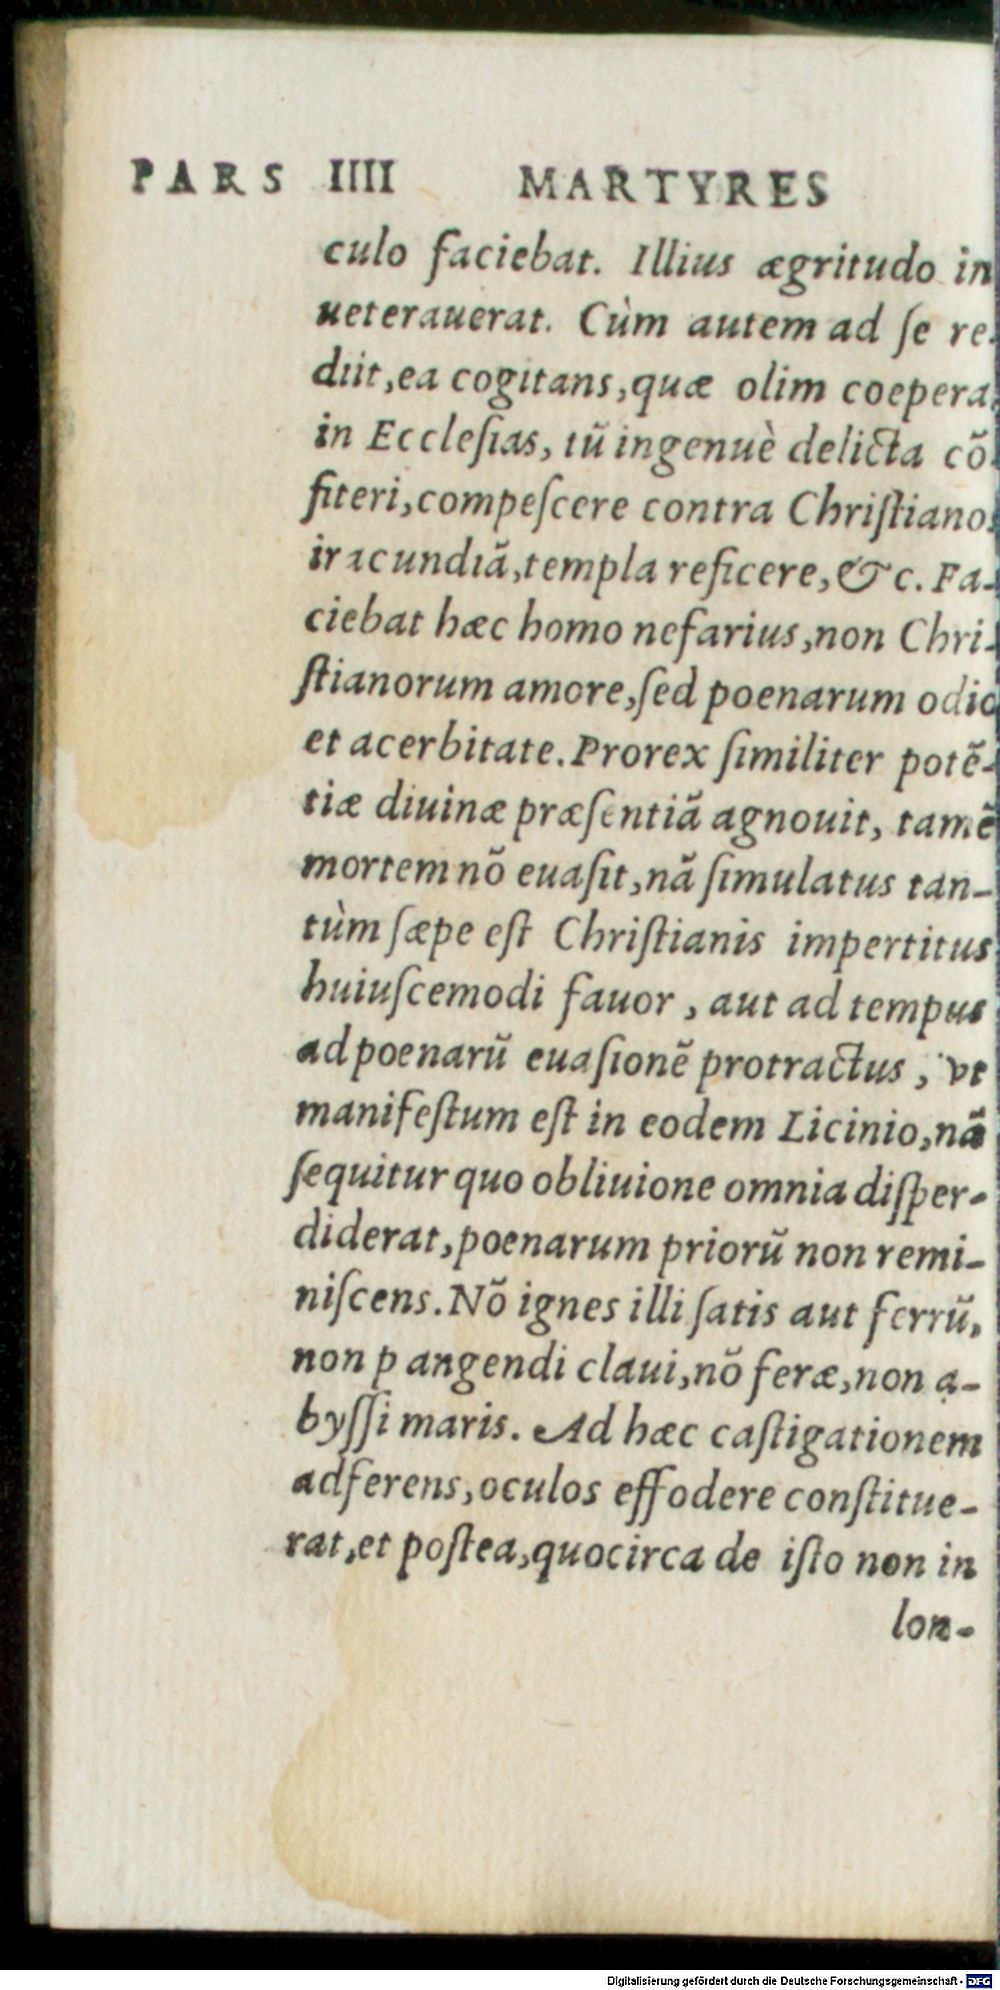 PARS IIII MARTYRES
culo faciebat. Illius ægritudo in
ueterauerat. Cùm autem ad ſe re-
diit,ea cogitans,quæ olim coepera
in Eccleſias, tũ ingenuè delicta cõ
fiteri,compeſcere contra Chriſtiano
iracundiã,templa reficere,&c. Fa-
ciebat hæc homo nefarius,non Chri-
ſtianorum amore,ſed poenarum odio
et acerbitate. Prorex ſimiliter potẽ-
tiæ diuinæ præſentiã agnouit, tamẽ
mortem nõ euaſit,nã ſimulatus tan-
tùm ſæpe eſt Chriſtianis impertitus
huiuſcemodi fauor , aut ad tempus
ad poenarũ euaſionẽ protractus , vt
manifeſtum eſt in eodem Licinio,nã
ſequitur quo obliuione omnia diſper-
diderat,poenarum priorũ non remi-
niſcens. Nõ ignes illi ſatis aut ferrũ,
non pangendi claui,nõ feræ,non a-
byſſi maris. Ad hæc caſtigationem
adferens,oculos effodere conſtitue-
rat,et poſtea,quocirca de iſto non in
lon-
Digitalisierung gefördert durch die Deutsche Forschungsgemeinschaft - DFG